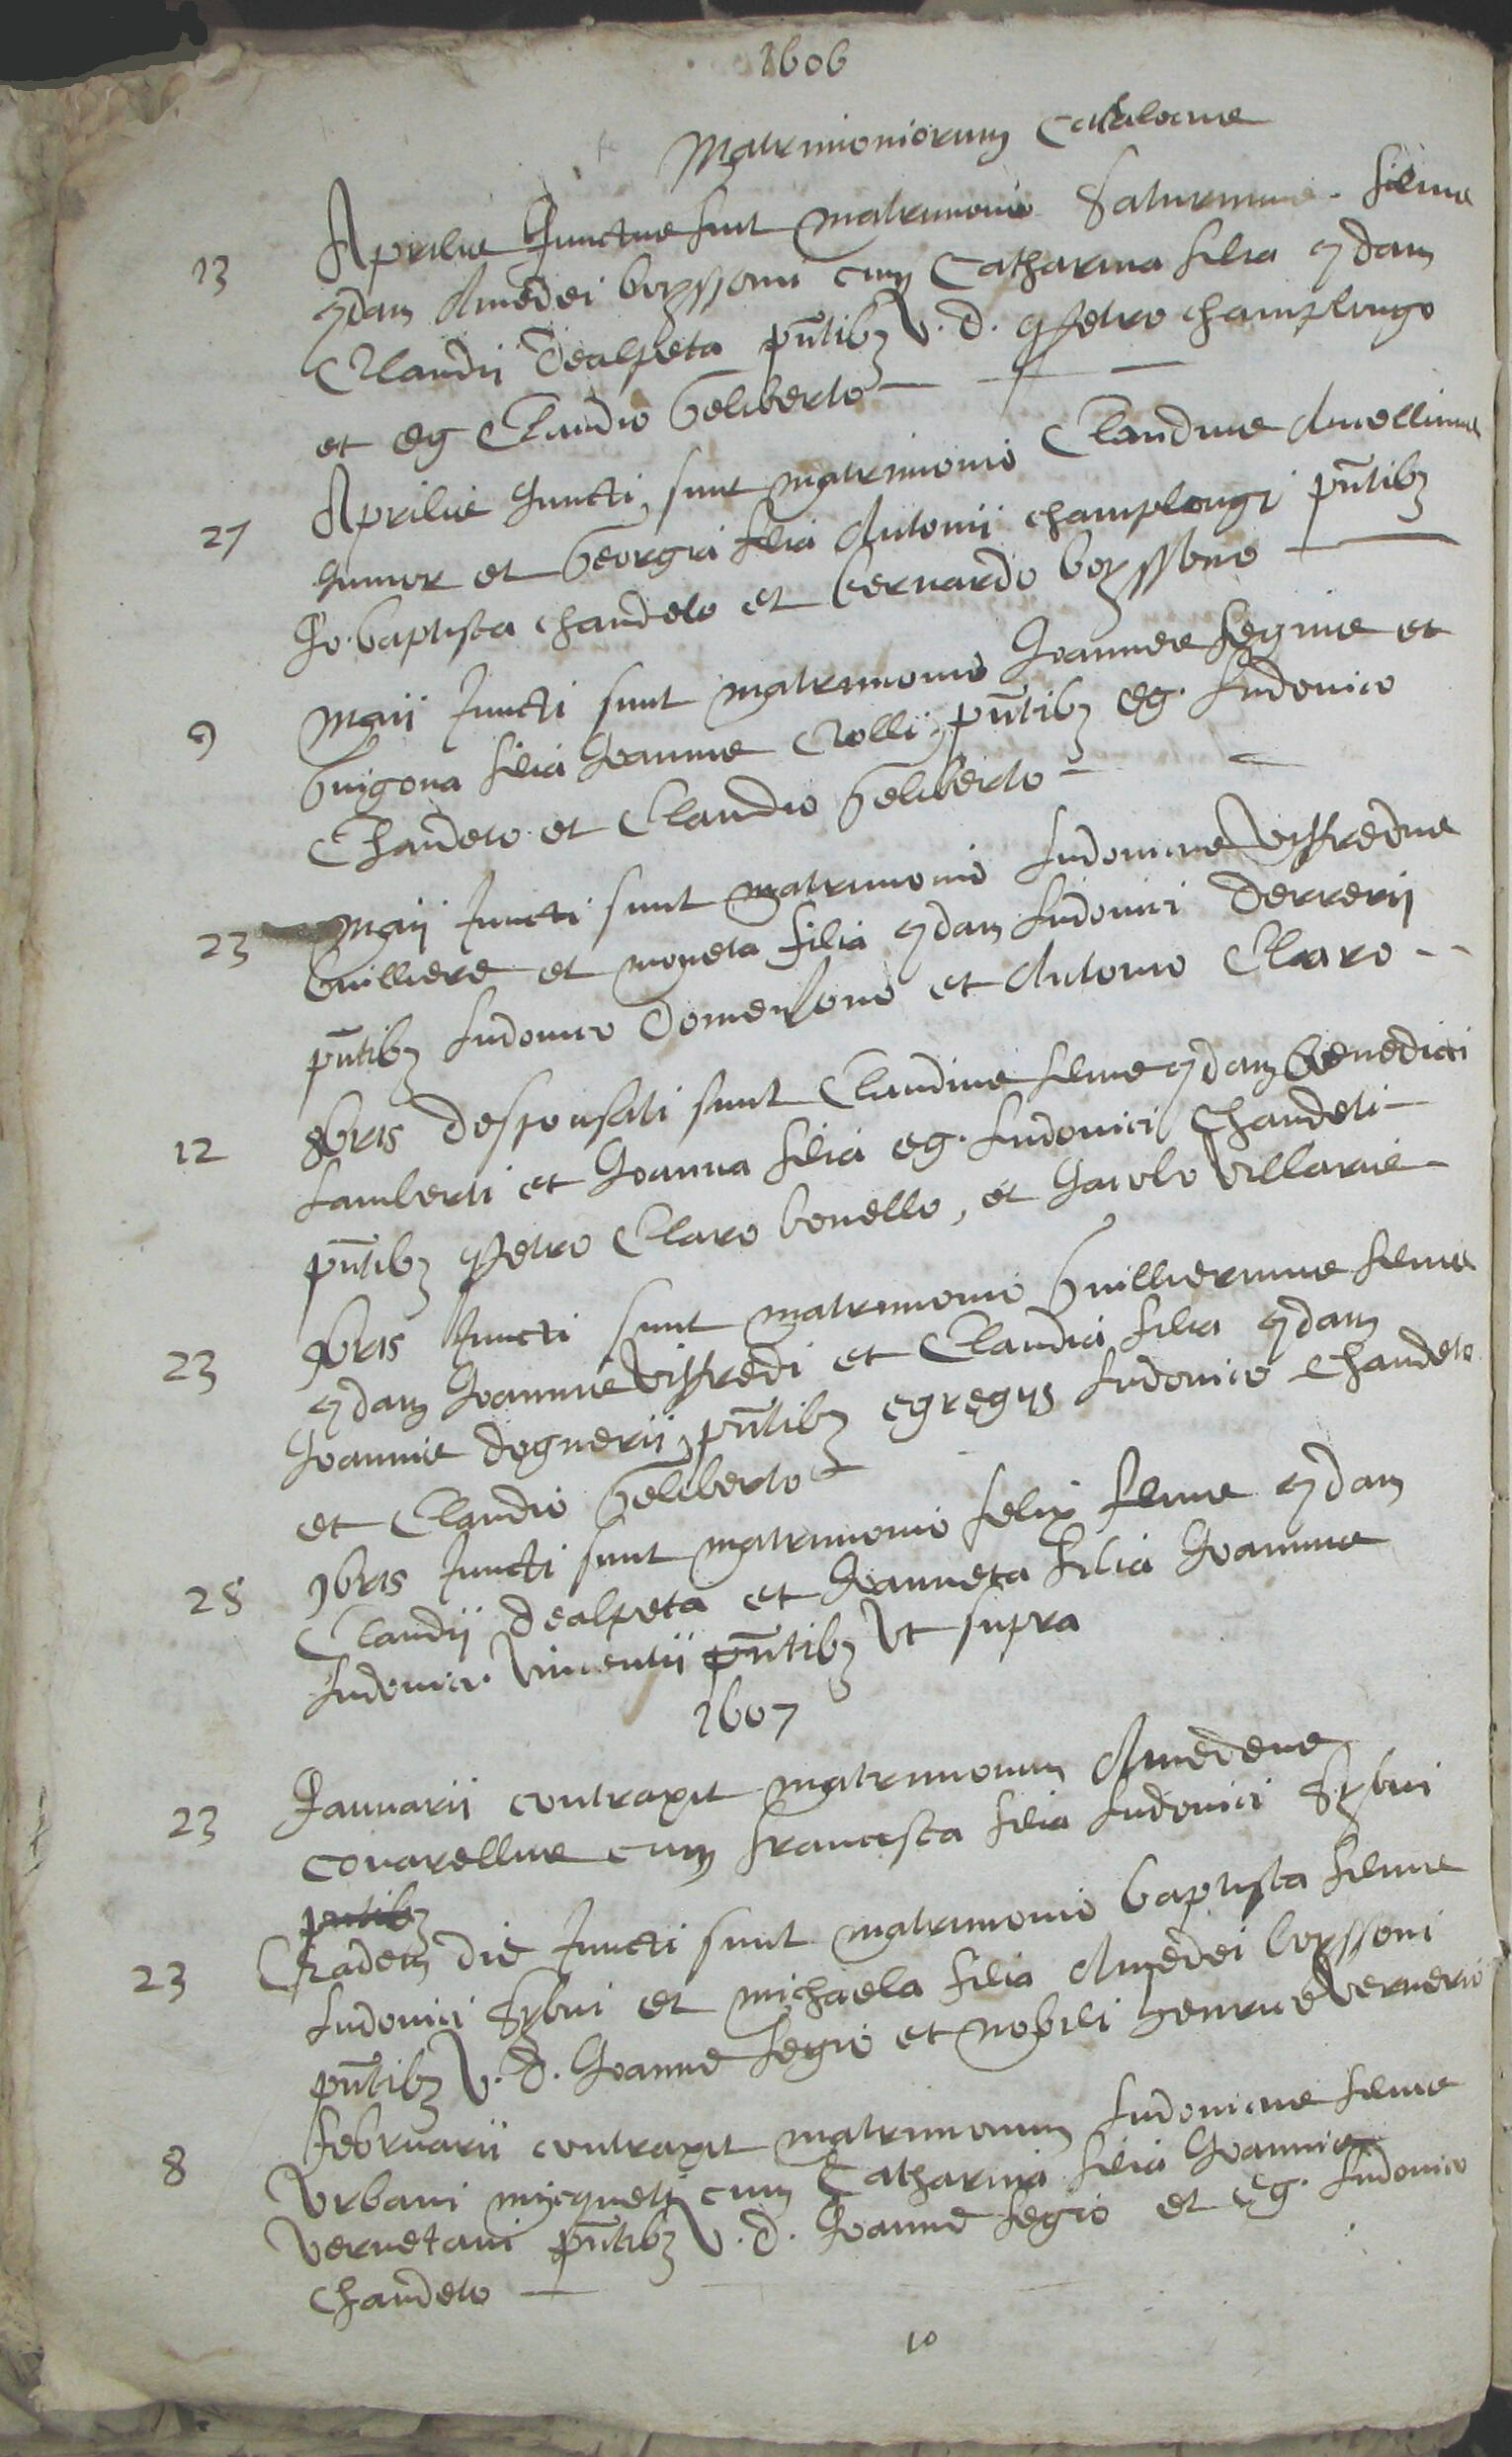 1606
Matrimoniorum Catalogus
13 Aprilis Junctus fuit matrimonio Saturninus filius
qdam Amedei boyssoni cum Catharina filia qdam
Claudii Dealpeta pntibz V. D. Petro champlongo
et eg Claudio Geliberto
27 Aprilis Juncti sunt matrimonio Claudius Amellinus
Junior et Georgia filia Antonii champlongi pntibz
Jo. baptista chandeto et bernardo boyssono
9 Maii Juncti sunt matrimonio Joannes Legius et
Guigona filia Joannis Crolli, pntibz eg. Ludovico
Chandeto et Claudio Geliberto
23 Maii Juncti sunt matrimonio Ludovicus Viffredus
Guilliere et moneta filia qdam Ludovici Derrerii
pntibz Ludovico Domensono et Antonio Claro
12 8bris desponsati sunt Claudius filius qdam Benedicti
Lamberti et Joanna filia eg. Ludovici Chandeti
pntibz Petro Claro bonello, et Jacobo Villario
23 9bris Juncti sunt matrimonio Guilliermus filius
qdam Joannis Viffredi et Claudia filia qdam
Joannis dognerii, pntibz egregiis Ludovico Chandeto
et Claudio Geliberto
28 9bris Juncti sunt matrimonio felix filius qdam
Claudii Dealpeta et Joanneta filia Joannis
Ludovici Vincentii pntibz Vt supra
1607
23 Januarii contraxit matrimonium Amedeus
covarellus cum francisca filia Ludovici Sybui
pntibz
23 Eadem die Juncti sunt matrimonio baptista filius
Ludovici Sybui et michaela filia Amedei boyssoni
pntibz V. D. Joanne Legio et Nobili henrico Vernerio
8 februarii contraxit matrimonium Ludovicus filius
Vrbani micqueti cum Catharina filia Joannis
Vernetani pntibz V. D. Joanne Legio et eg. Ludovico
Chandeto
10